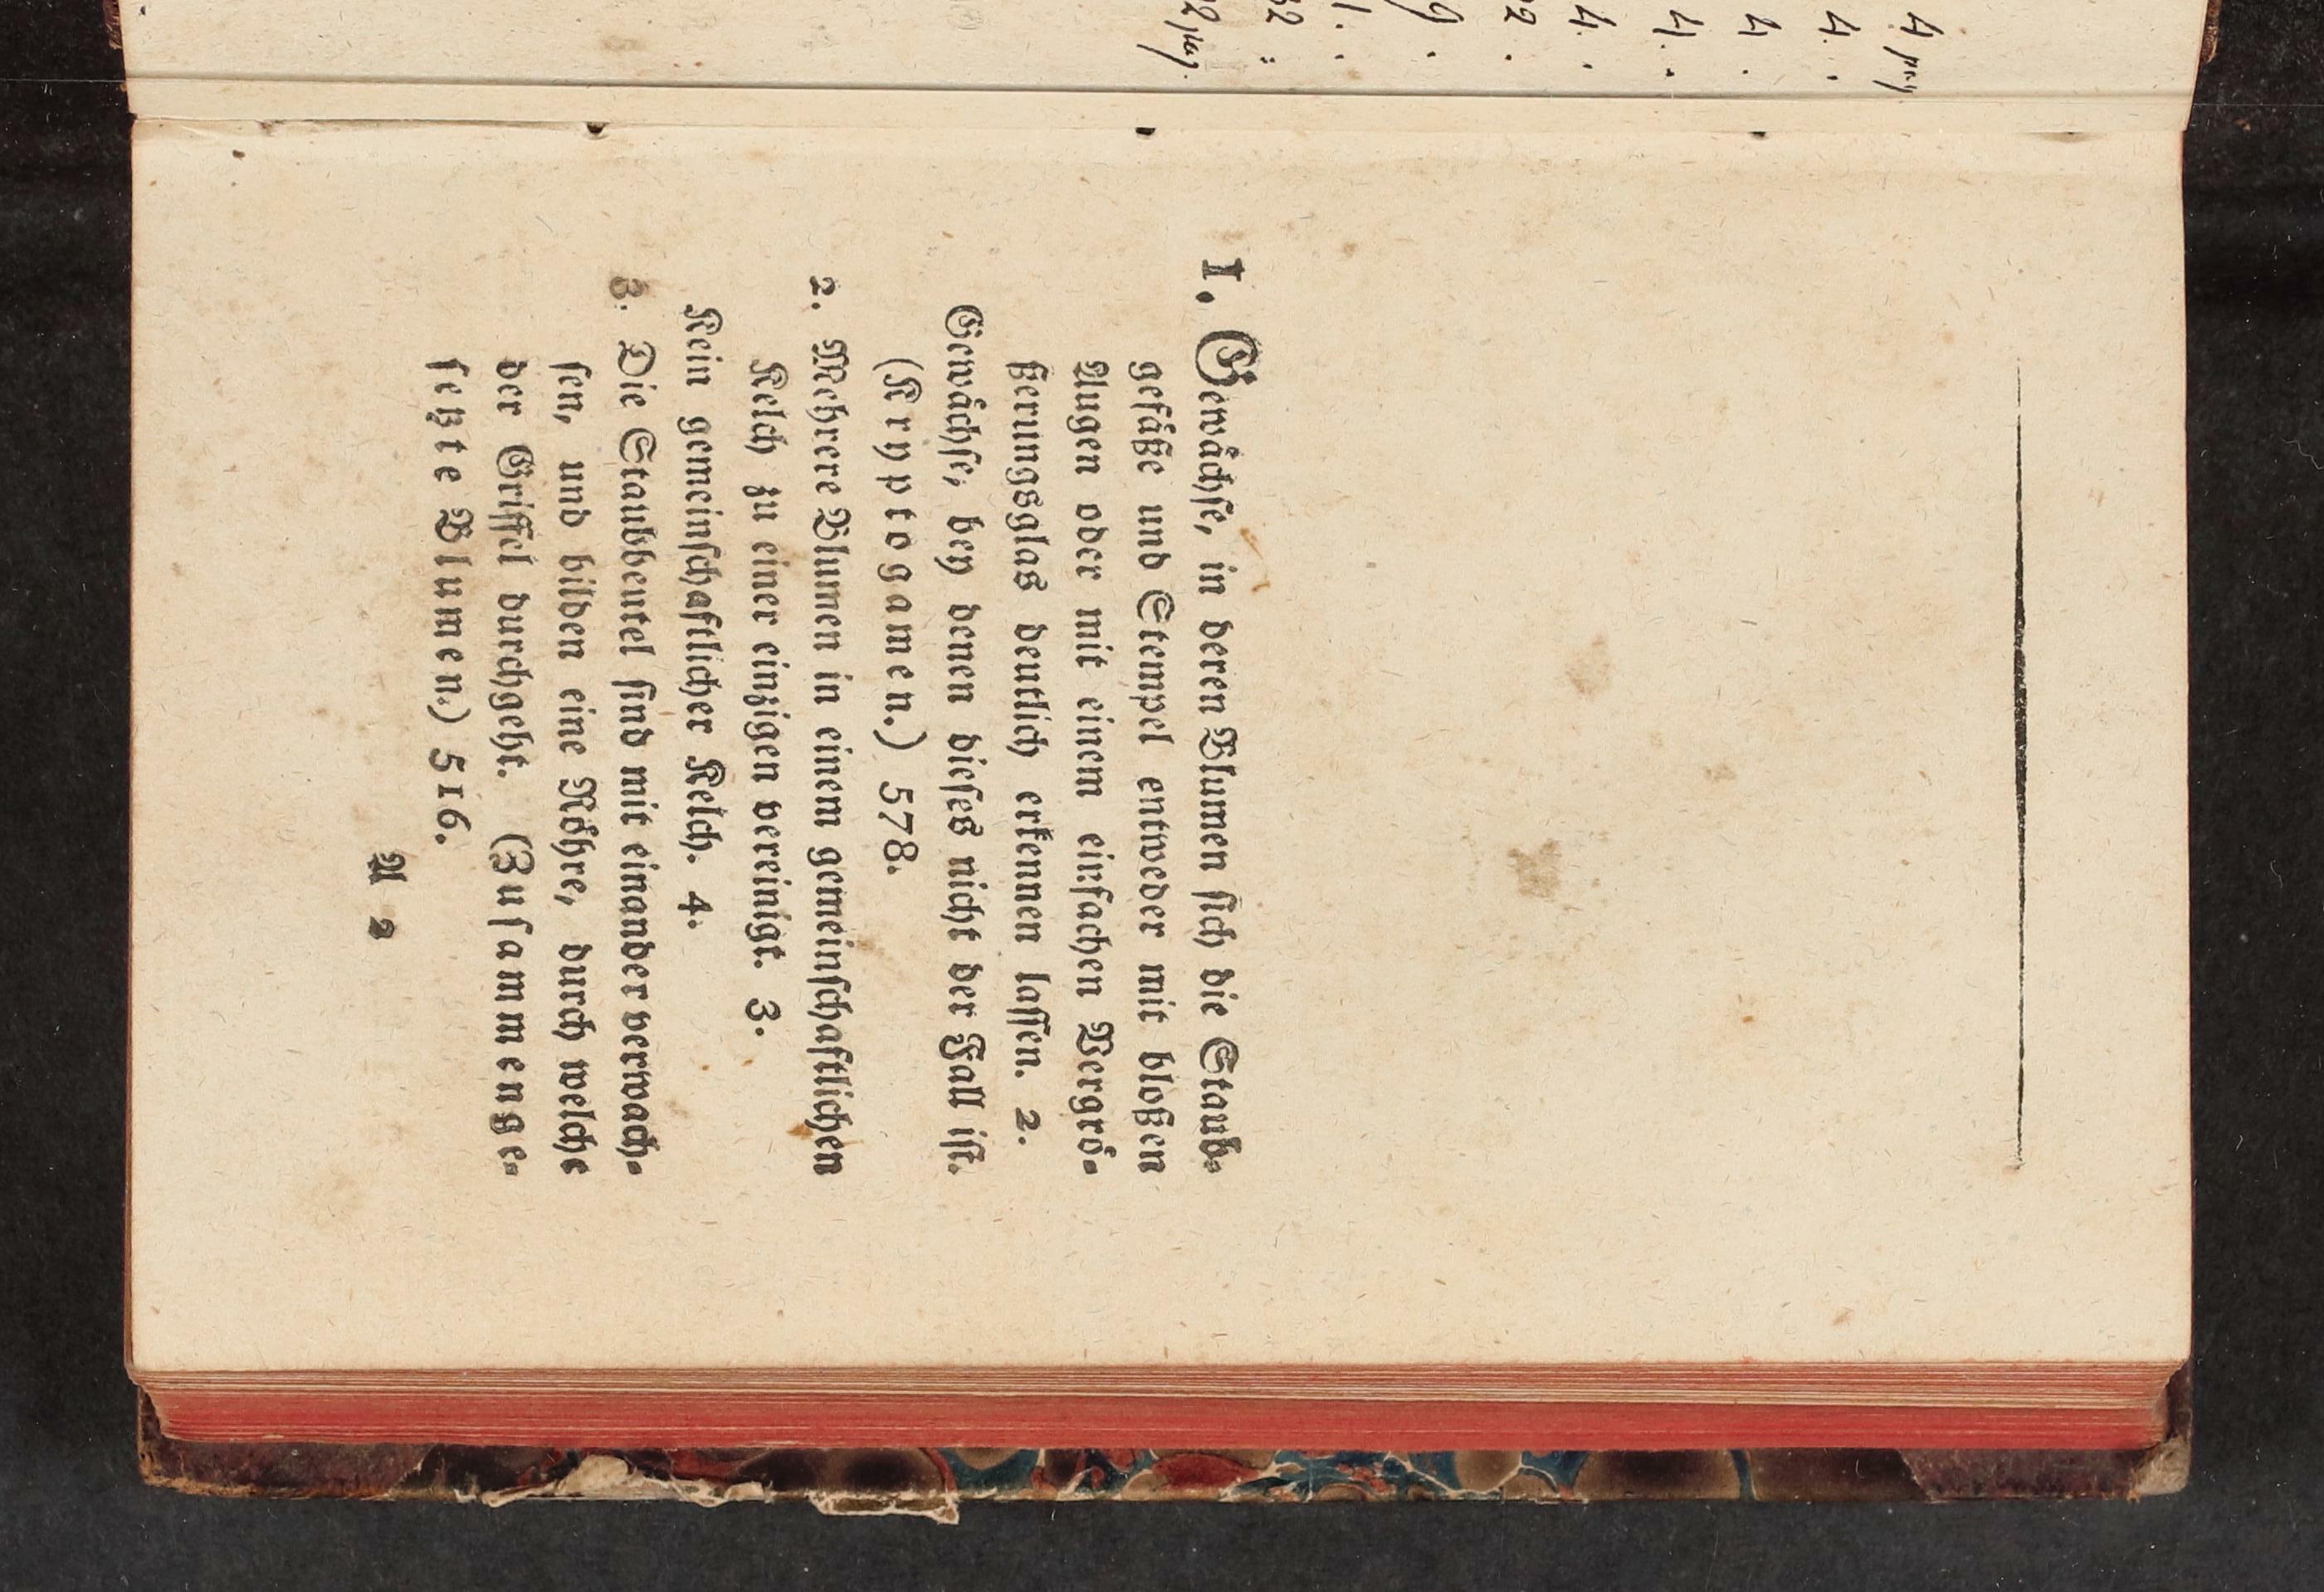 1. Gewaͤchſe, in deren Blumen ſich die Staub-
gefaͤße und Stempel entweder mit bloßen
Augen oder mit einem einfachen Vergroͤ-
ßerungsglas deutlich erkennen laſſen. 2.
Gewaͤchſe, bey denen dieſes nicht der Fall iſt.
(Kryptogamen.) 578.
2. Mehrere Blumen in einem gemeinſchaftlichen
Kelch zu einer einzigen vereinigt. 3.
Kein gemeinſchaftlicher Kelch. 4.
3. Die Staubbeutel ſind mit einander verwach-
ſen, und bilden eine Roͤhre, durch welche
der Griffel durchgeht. (Zuſammenge-
ſetzte Blumen.) 516.
A 2